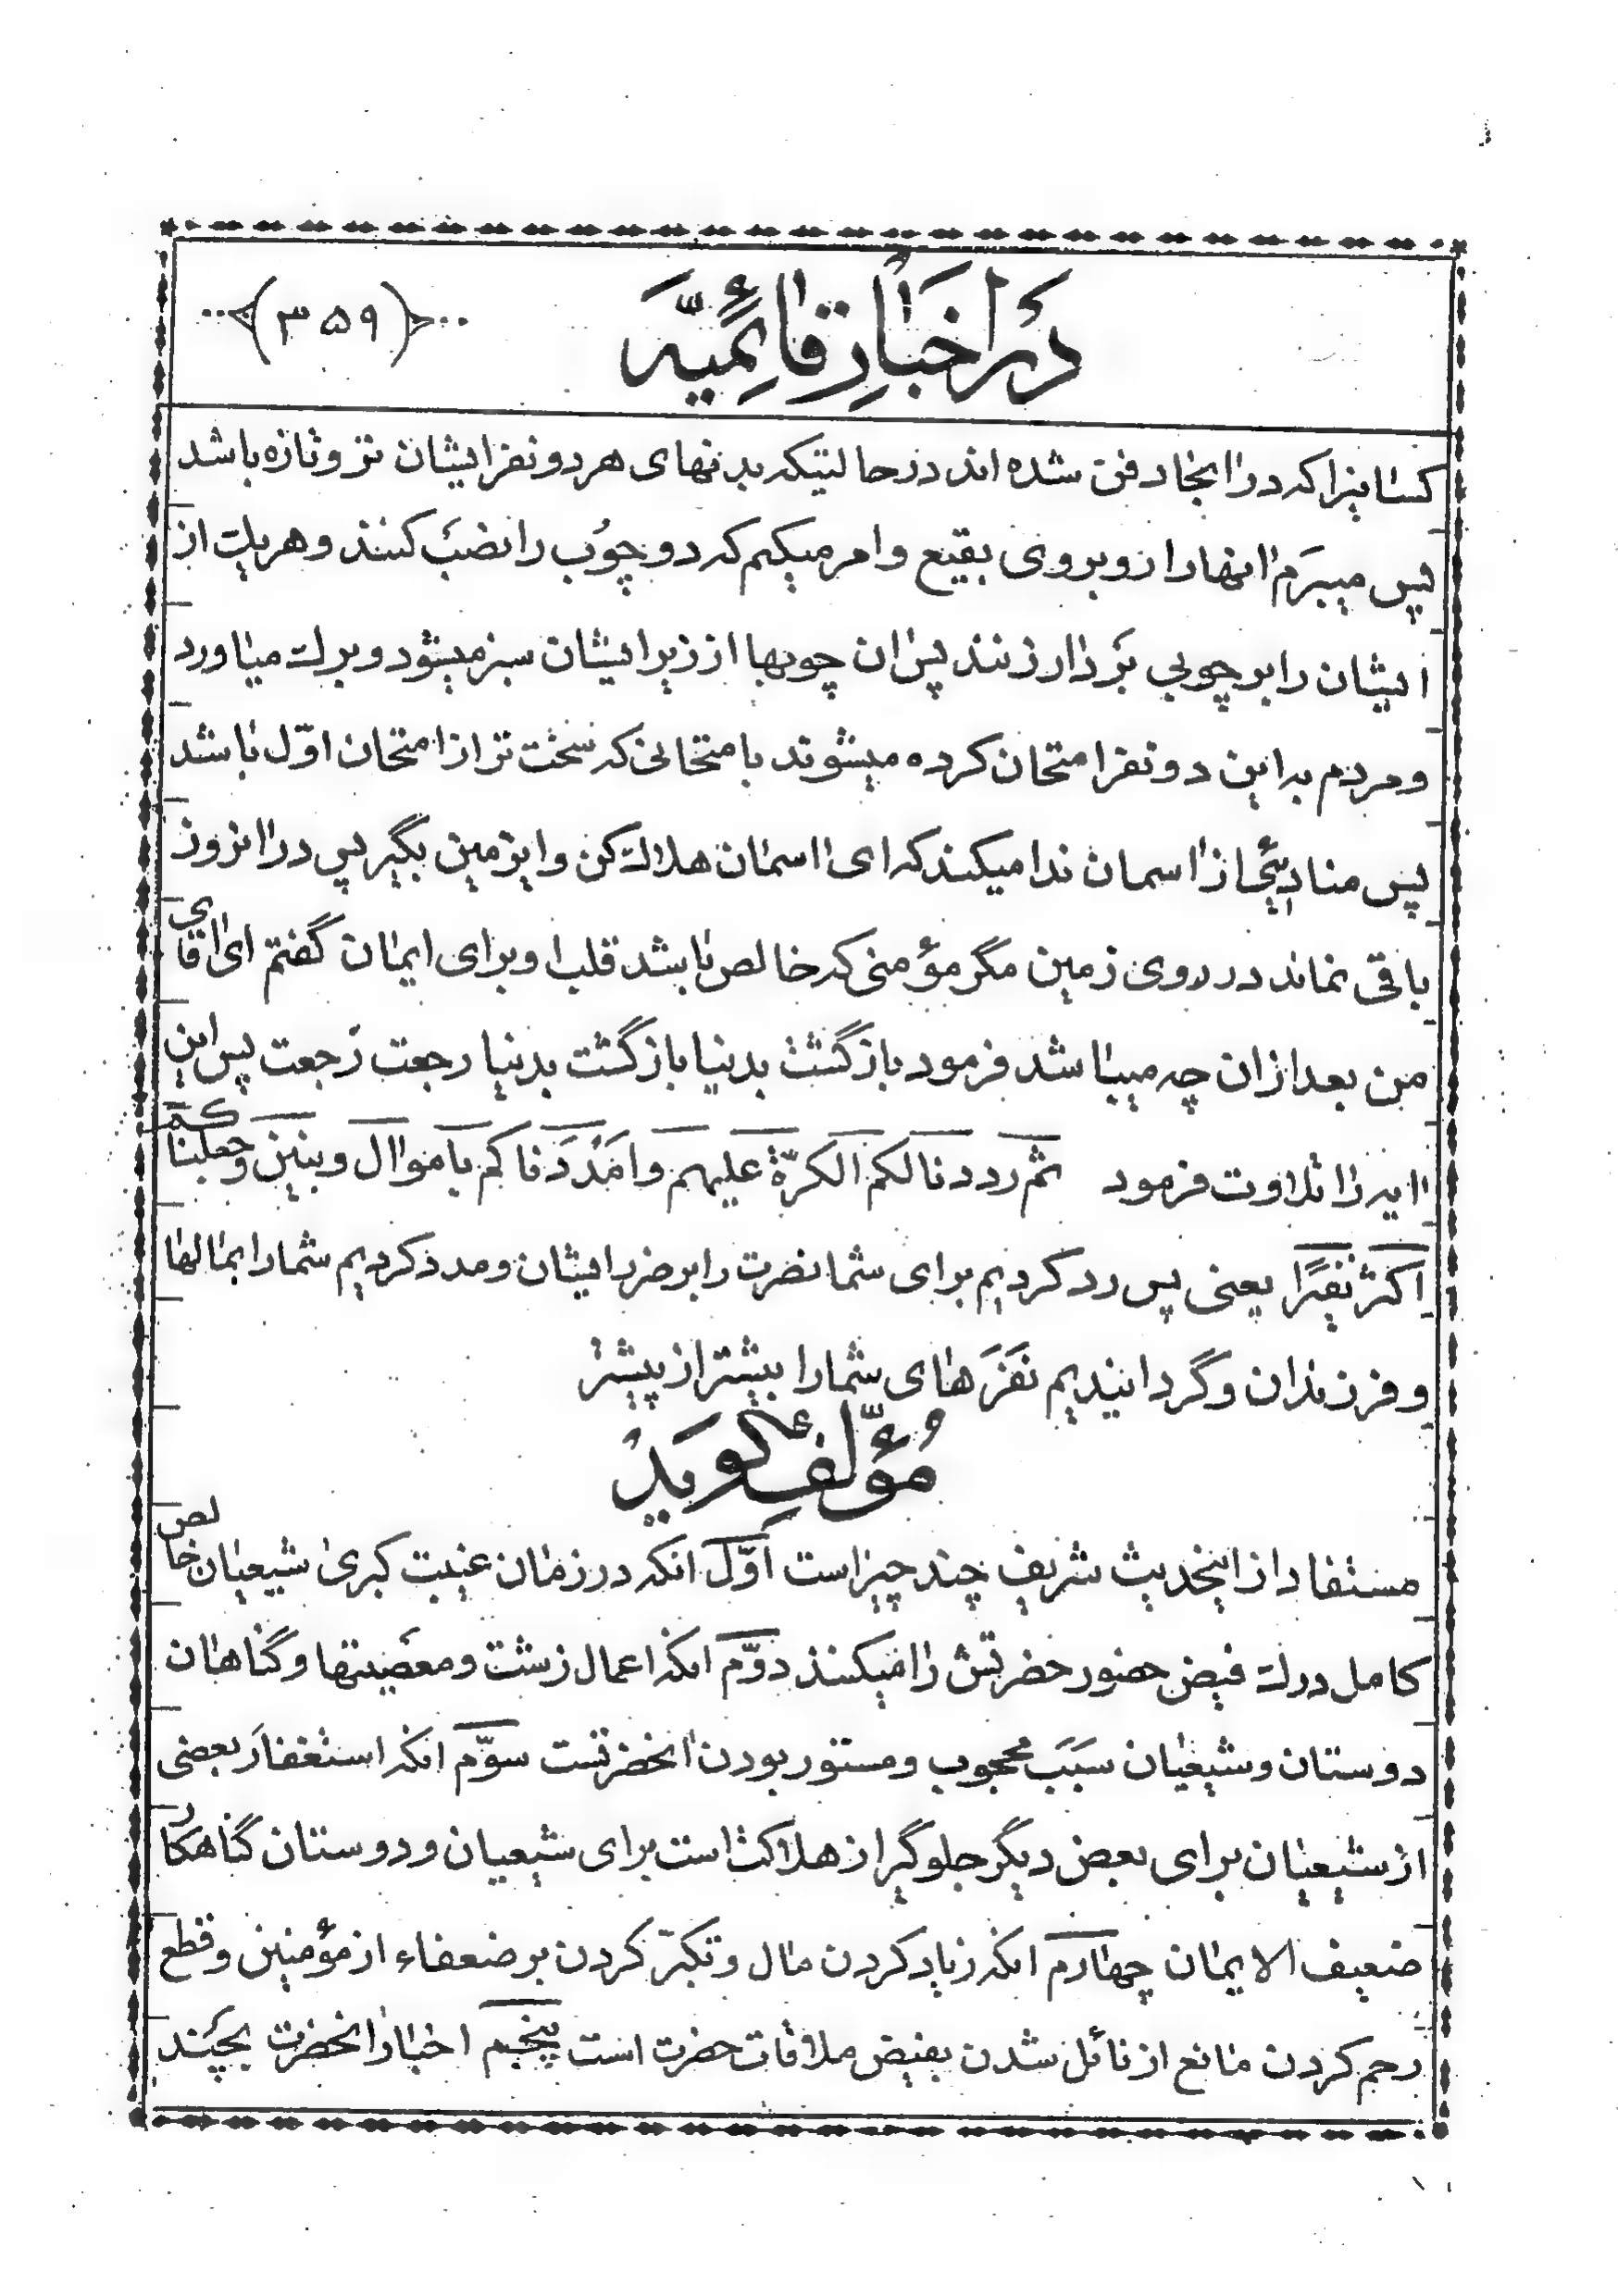 در اخبار قائمیّه ﴿۳۵۹﴾
کسانیرا که در اینجا دفن شده اند در حالتیکه بدنهای هر دو نفر ایشان تر و تازه باشد
پس میبرم انها را رو بروی بقیع و امر میکنم که دو چوب را نصب کنند و هر یک از
ایشان را بر چوبی بر دار زنند پس ان چوبها از زیر ایشان سبز میشود و برک میاورد
و مردم به این دو نفر امتحان کرده میشوند بامتحانی که سخت تر از امتحان اوّل باشد
پس منادیئی از اسمان ندا میکند که ای اسمان هلاک کن و ایزمین بگیر پس در انروز
باقی نماند در روی زمین مگر مؤمنی که خالص باشد قلب او برای ایمان گفتم ای اقای
من بعد از ان چه میباشد فرمود بازگشت بدنیا بازگشت بدنیا رجعت رجعت پس این
ایه را تلاوت فرمود ثم رددنا لکم الکرّة علیهم و امددناکم باموال و بنین و جعلناکم
اکثر نفیرًا یعنی پس رد کردیم برای شما نصرت را بر ضرر ایشان و مدد کردیم شما را بمالها
و فرزندان و گردانیدیم نفرهای شما را بیشتر از پیشتر
مؤلّف گوید
مستفاد از اینحدیث شریف چند چیز است اوّل انکه در زمان غیبت کبری شیعیان خالص
کامل درک فیض حضور حضرتش را میکنند دوّم انکه اعمال زشت و معصیتها و گناهان
دوستان و شیعیان سبب محجوب و مستور بودن انحضرتست سوّم انکه استغفار بعضی
از شیعیان برای بعض دیگر جلوگیر از هلاکت است برای شیعیان و دوستان گناهکار
ضعیف الایمان چهارم انکه زیاد کردن مال و تکبّر کردن بر ضعفاء از مؤمنین و قطع
رحم کردن مانع از نائل شدن بفیض ملاقات حضرت است پنجم اخبار انحضرت بچند